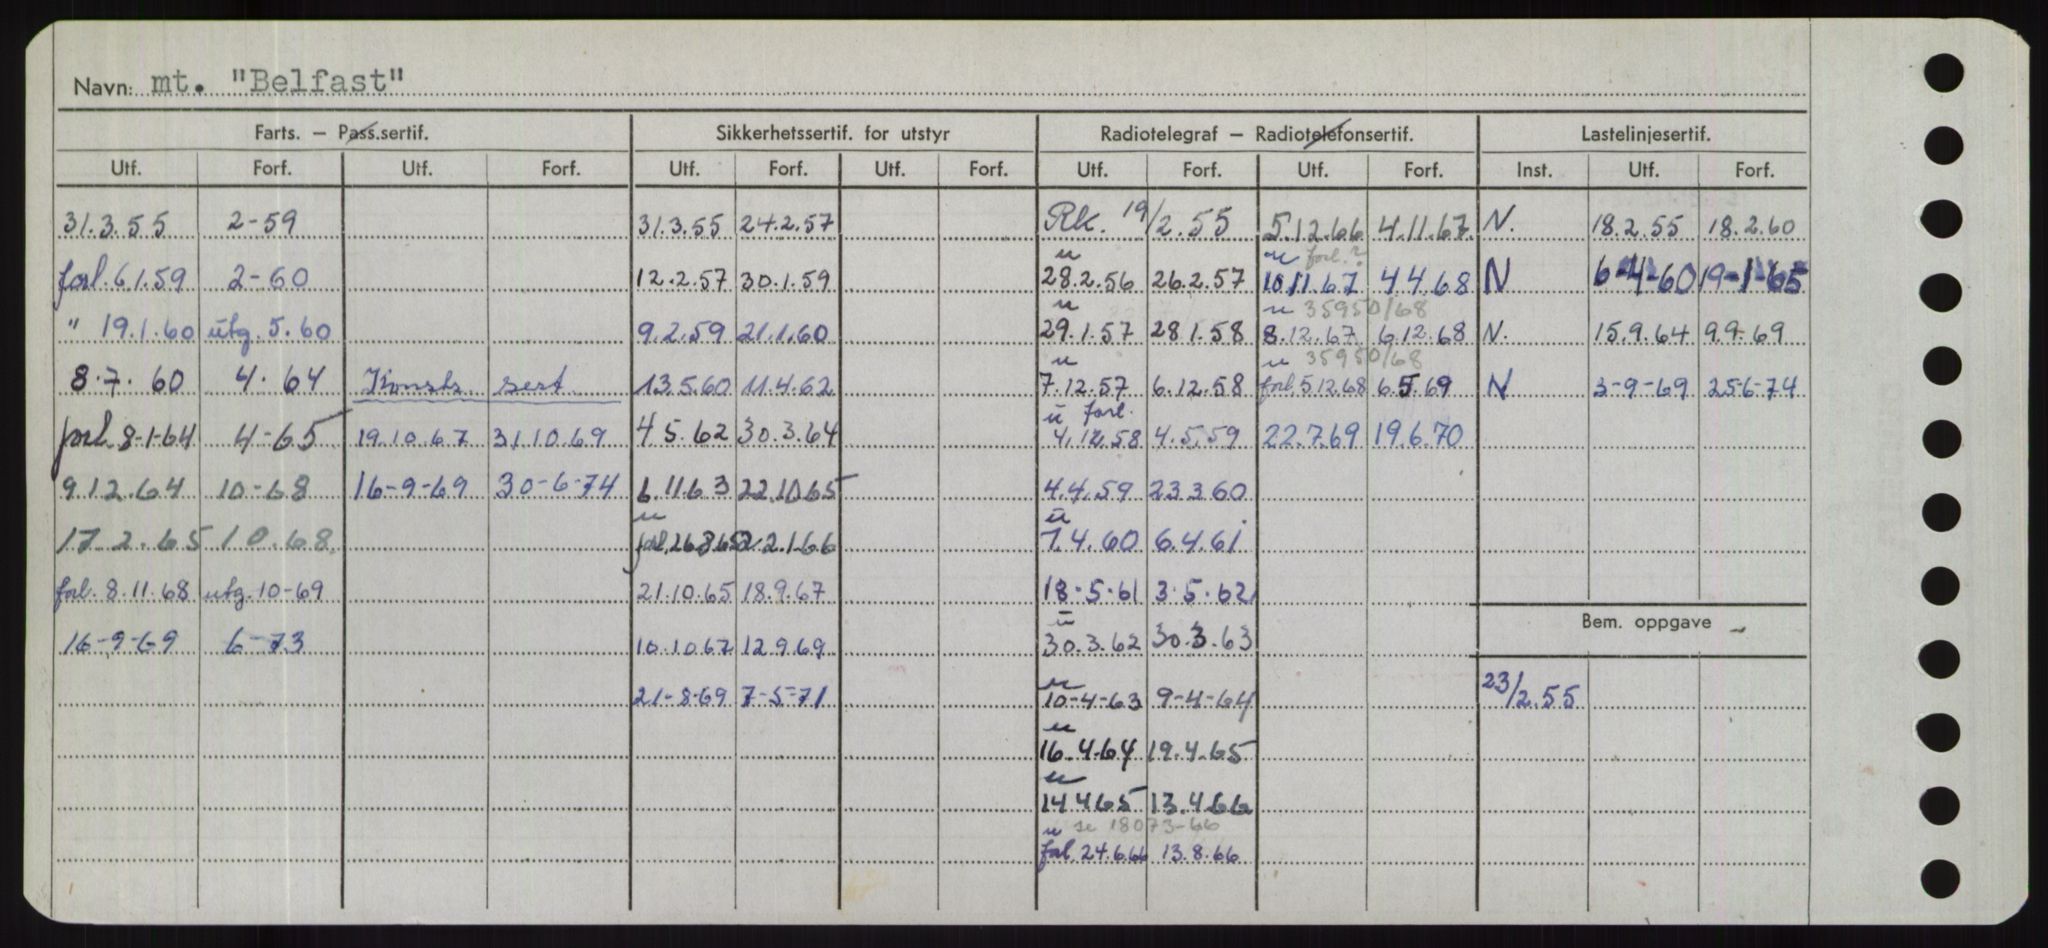 Navn: mt. "Belfast"
Farts. – Pass.sertif. Sikkerhetssertif. for utstyr Radiotelegraf – Radiotelefonsertif. Lastelinjesertif.
Utf. Forf. Utf. Forf. Utf. Forf. Utf. Forf. Utf. Forf. Utf. Forf. Inst. Utf. Forf.
31.3.55 2-59 31.3.55 24.2.57 Rk. 19/2.55 5.12.66 4.11.67 N. 18.2.55 18.2.60
u u forl.?
forl. 6.1.59 2-60 12.2.57 30.1.59 28.2.56 26.2.57 10.11.67 4.4.68 N 6-4-60 19-1-65
u u 35950/68
" 19.1.60 utg. 5.60 9.2.59 21.1.60 29.1.57 28.1.58 8.12.67 6.12.68 N. 15.9.64 9.9.69
u u 35950/68
8.7.60 4.64 Konstr. sert. 13.5.60 11.4.62 7.12.57 6.12.58 forl. 5.12.68 6.5.69 N 3-9-69 25-6-74
u forl.
forl. 8-1-64 4-65 19.10.67 31.10.69 4.5.62 30.3.64 4.12.58 4.5.59 22.7.69 19.6.70
9.12.64 10-68 16-9-69 30-6-74 6.11.63 22.10.65 4.4.59 23.3.60
u u
17.2.65 10.68. forl. 26.8.65 22.1.66 7.4.60 6.4.61
forl. 8.11.68 utg. 10-69 21.10.65 18.9.67 18-5-61 3.5.62
u
Bem. oppgave
16-9-69 6-73 10.10.67 12.9.69 30.3.62 30.3.63
u
21-8-69 7-5-71 10-4-63 9-4-64 23/2.55
u
16.4.64 19.4.65
u
14.4.65 13.4.66
u se 18073-66
forl. 24.6.66 13.8.66